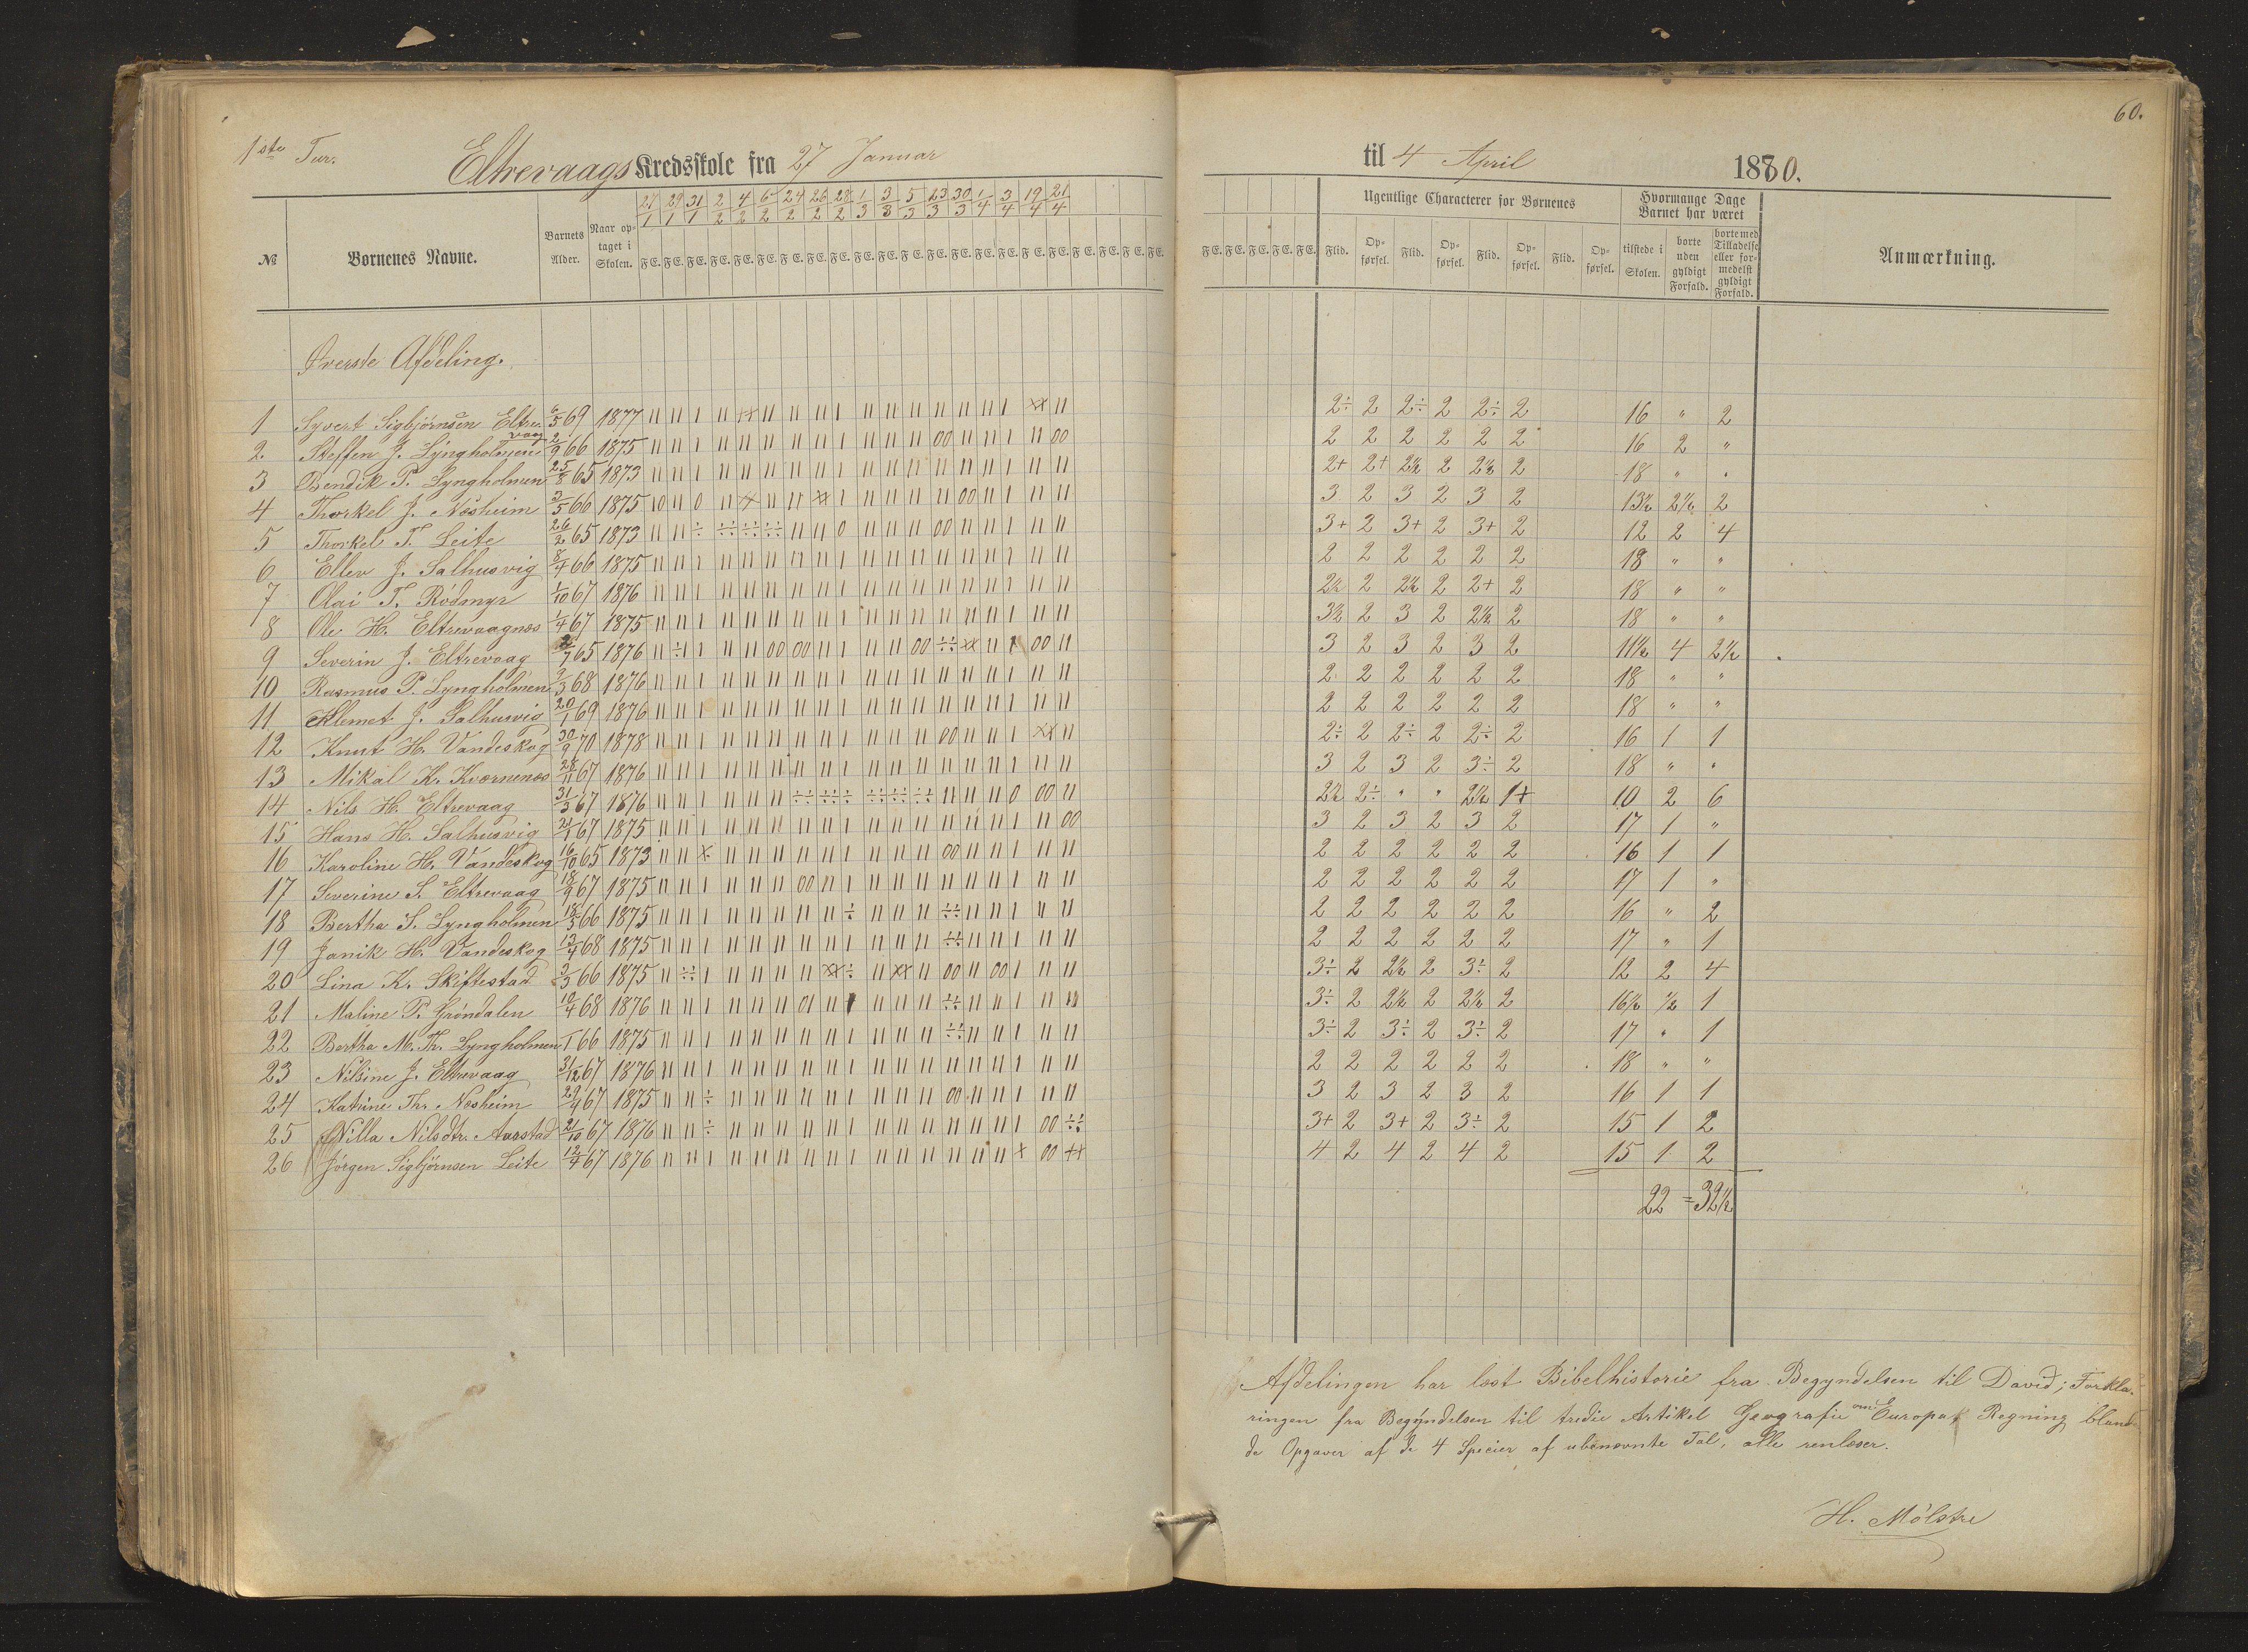 60.
1ste Tur.
Eltrevaags Kredsskole fra 27 Januar til 4 April 1880.
27/1 29/1 31/1 2/2 4/2 6/2 24/2 26/2 28/2 1/3 3/3 5/3 23/3 30/3 1/4 3/4 19/4 21/4
№ Børnenes Navne. Barnets Alder. Naar optaget i Skolen. F E. Ugentlige Characterer for Børnenes Flid. Opførsel. Flid. Opførsel. Flid. Opførsel. Flid. Opførsel. Hvormange Dage Barnet har været tilstede i Skolen. borte uden gyldigt Forfald. borte med Tilladelse eller formedelst gyldigt Forfald. Anmærkning.
Øverste Afdeling.
1 Syvert Sigbjørnsen Eltrevaag 6/5 69 1877 2÷ 2 2÷ 2 2÷ 2 16 " 2
2. Steffen J. Lyngholmen 2/9 66 1875 2 2 2 2 2 2 16 2 "
3 Bendik P. Lyngholmen 25/8 65 1873 2+ 2+ 2½ 2 2½ 2 18 " "
4 Thorkel J. Nosheim 3/5 66 1875 3 2 3 2 3 2 13½ 2½ 2
5 Thorkel T. Leite 26/2 65 1873 3+ 2 3+ 2 3+ 2 12 2 4
6 Ellev J. Salhusvig 8/4 66 1875 2 2 2 2 2 2 18 " "
7 Olai T. Rödmyr 1/10 67 1876 2½ 2 2½ 2 2+ 2 18 " "
8 Ole H. Eltrevaagnæs 1/4 67 1875 3½ 2 3 2 2½ 2 18 " "
9 Severin J. Eltrevaag 65 1876 3 2 3 2 3 2 11½ 4 2½
10 Rasmus P. Lyngholmen 2/3 68 1876 2 2 2 2 2 2 18 " "
11 Klemet J. Salhusvig 20/1 69 1876 2 2 2 2 2 2 18 " "
12 Knut H. Vandeskog 30/9 70 1878 2÷ 2 2÷ 2 2÷ 2 16 1 1
13 Mikal K. Kvernenæs 28/11 67 1876 3 2 3 2 3÷ 2 18 " "
14 Nils H. Eltrevaag 31/3 67 1876 2½ 2÷ " " 2½ 1+ 10 2 6
15 Hans H. Salhusvig 21/1 67 1875 3 2 3 2 3 2 17 1 "
16 Karoline H. Vandeskog 16/10 65 1873 2 2 2 2 2 2 16 1 1
17 Severine S. Eltrevaag 18/9 67 1875 2 2 2 2 2 2 17 1 "
18 Bertha S. Lyngholmen 18/5 66 1875 2 2 2 2 2 2 16 " 2
19 Janik H. Vandeskog 13/4 68 1875 2 2 2 2 2 2 17 " 1
20 Lina K. Skiftestad 3/3 66 1875 3÷ 2 2½ 2 3÷ 2 12 2 4
21 Maline P. Grøndalen 10/4 68 1876 3÷ 2 2½ 2 2½ 2 16½ ½ 1
22 Bertha M. Th. Lyngholmen 66 1875 3÷ 2 3÷ 2 3÷ 2 17 " 1
23 Nilsine J. Eltrevaag 31/12 67 1876 2 2 2 2 2 2 18 " "
24 Katrine Thr. Nosheim 29/4 67 1875 3 2 3 2 3 2 16 1 1
25 Villa Nilsdtr. Aarstad 21/10 67 1876 3+ 2 3+ 2 3÷ 2 15 1 2
26 Jörgen Sigbjörnsen Leite 12/4 67 1876 4 2 4 2 4 2 15 1 2
22 = 32½
Afdelingen har læst Bibelhistorie fra Begyndelsen til David; Forkla-
ringen fra Begyndelsen til tredie Artikel Geografie om Europa, Regning blande-
de Opgaver af de 4 Specier af ubenævnte Tal, alle renlæser.
H. Mölstre